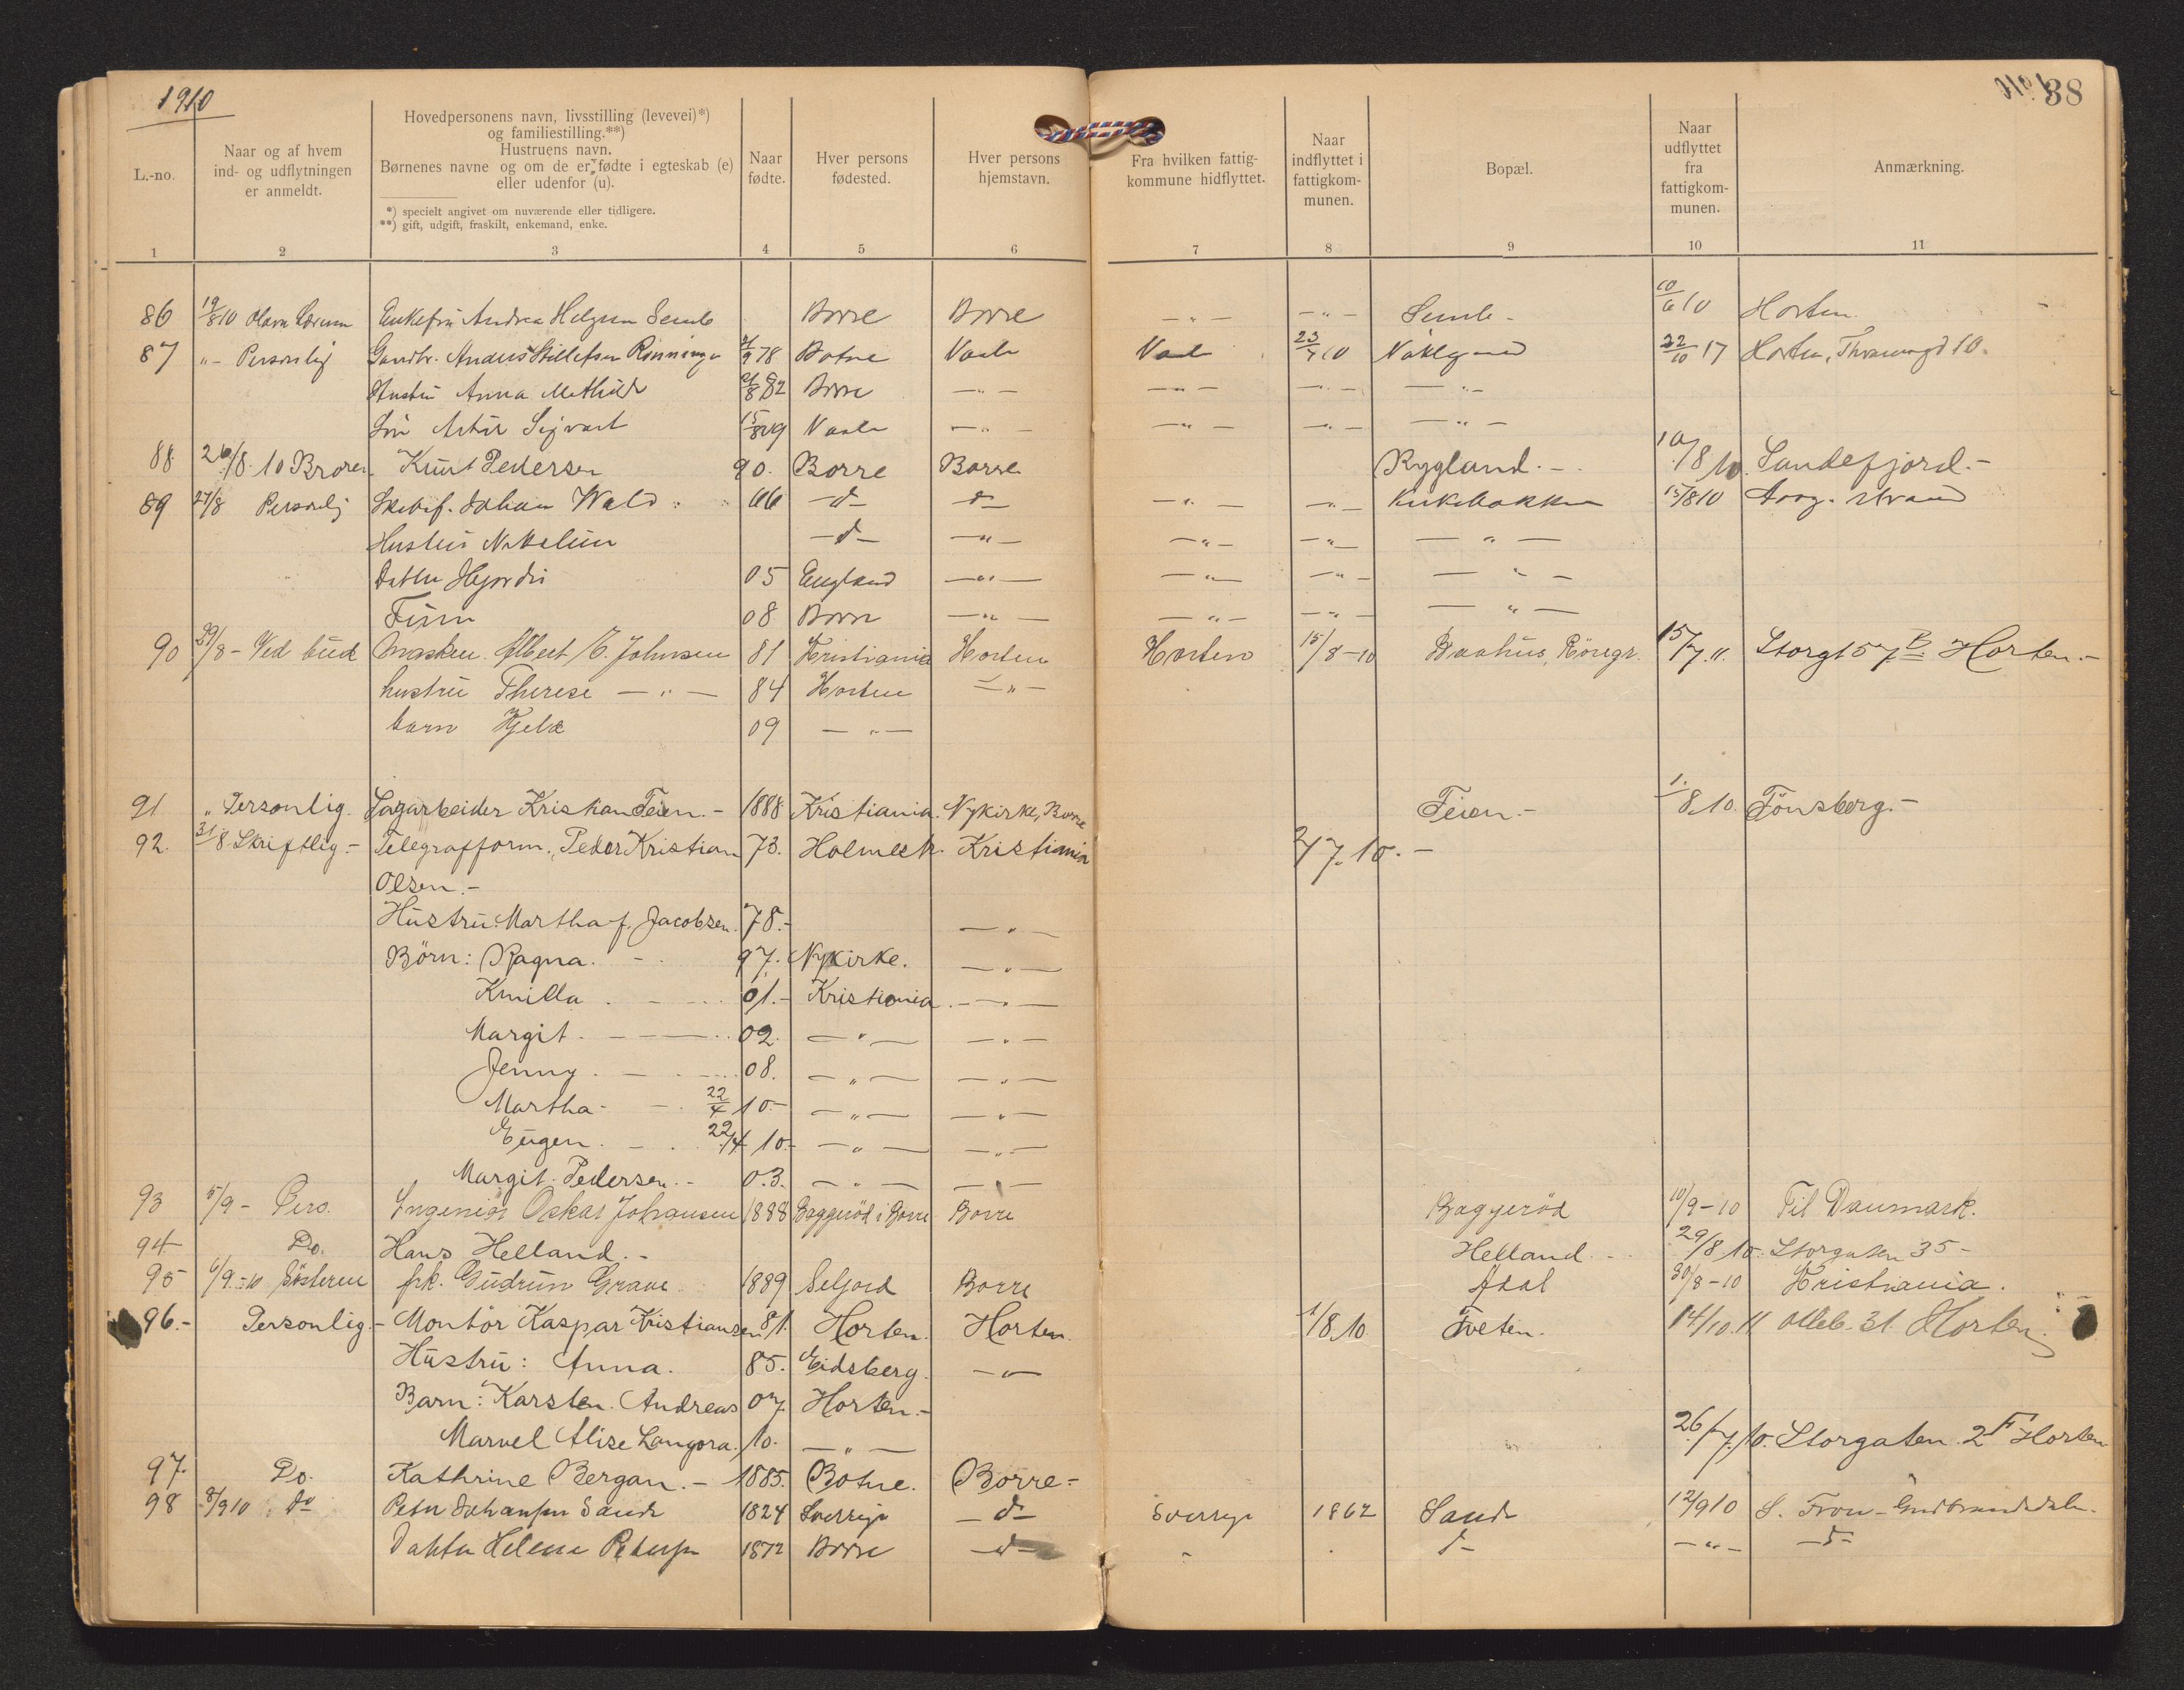 1910
38
L.-no.
Naar og af hvem
ind- og udflytningen
er anmeldt.
Hovedpersonens navn, livsstilling (levevei)*)
og familiestilling.**)
Hustruens navn.
Børnenes navne og om de er fødte i egteskab (e)
eller udenfor (u).
*) specielt angivet om nuværende eller tidligere.
**) gift, udgift, fraskilt, enkemand, enke.
Naar
fødte.
Hver persons
fødested.
Hver persons
hjemstavn.
Fra hvilken fattig-
kommune hidflyttet.
Naar
indflyttet i
fattigkom-
munen.
Bopæl.
Naar
udflyttet
fra
fattigkom-
munen.
Anmærkning.
1 2 3 4 5 6 7 8 9 10 11
86 19/8 10 Enkefru Andrea Helgesen Semb Borre Borre -"- -"- Semb - 10/6 10 Horten
87 "- Personlig Gaardbr. Anders 78 Botne Vaale Vaale 23/7 10 22/10 17 Horten,
Hustru Anna Mathilde 82 Borre -"- -"- -"- -"-
Søn Artur Sigvart Vaale -"- -"- -"- -"-
88. 26/8. 10 Broren Knut Pedersen 90. Borre Borre Rygland. - 10/8 10. Sandefjord. -
89 27/8 Personlig Skibsf. Johan Wald 66 -d- d- -"- -"- Kirkebakken 15/8 10 Aasg. strand
Hustru Nathalie -d- -"- -"- -"- -"-
Datter Hjördis 05 England -"- -"- -"- -"-
Finn 08 Borre -"- -"- -"- -"-
90 29/8 - Ved bud Maskin. Albert E. Johnsen 81 Kristiania Horten Horten 15/8-10 Baahus, Röregr. 15/7. 11. Storgt 57 B. Horten. -
hustru Therese -"- 84 Horten -"-
barn Kjeld 09 -"-
91 " Personlig. Sagarbeider Kristian Feien. - 1888 Kristiania. Nykirke, Borre Feien. - 1./8. 10. Tönsberg. -
92. 31/8 Skriftlig. - Telegrafform., Peder Kristian 73. Holmestr. Kristiania 2/7. 10. -
Olsen. -
Hustru: Martha f. Jacobsen. 78. - -"-
Börn: Ragna. - 97. Nykirke. -"-
Kmilla. - 01. - Kristiania. -"-
Margit. - 02. -"- -"-
Jenny. - 08. -"- -"-
Martha - 22/4 10 - -"- -"-
Eugen. - 22/4 10 - -"- -"-
Margit. Pedersen. - 03. -"- -"-
93 5/9 - Pers. Ingeniör Oskar Johansen 1888 Baggeröd i Borre Borre Baggeröd 10/9-10 Til Danmark.
94 Do. Hans Helland. - Helland. - 29/8 10. Storgaten 35 -
95 6/9 - 10 Søsteren frk. Gudrun Grave 1889 Seljord Borre Adal 30/8-10 Kristiania.
96. - Personlig - Montör Kaspar Kristiansen 81. Horten. Horten. 1/8. 10. Tveten. 14/10. 11 31 Horten.
Hustru: Anna. 85. Eidsberg. -"-
Barn: Karsten. Andreas 07. Horten. -
Marvel Alise Langora. 10. -"-
97. Do. Kathrine Bergan. - 1885. Botne. Borre - 26/7. 10. Storgaten. 2 F Horten
98 8/9 10 do Peter Johansen Sande 1824 Sverrige -d- Sverrige 1862 Sande 12/9 10 S. Fron - Gudbrandsdalen.
Datter Helene Petersen 1872 Borre -d- d- -"- -d-